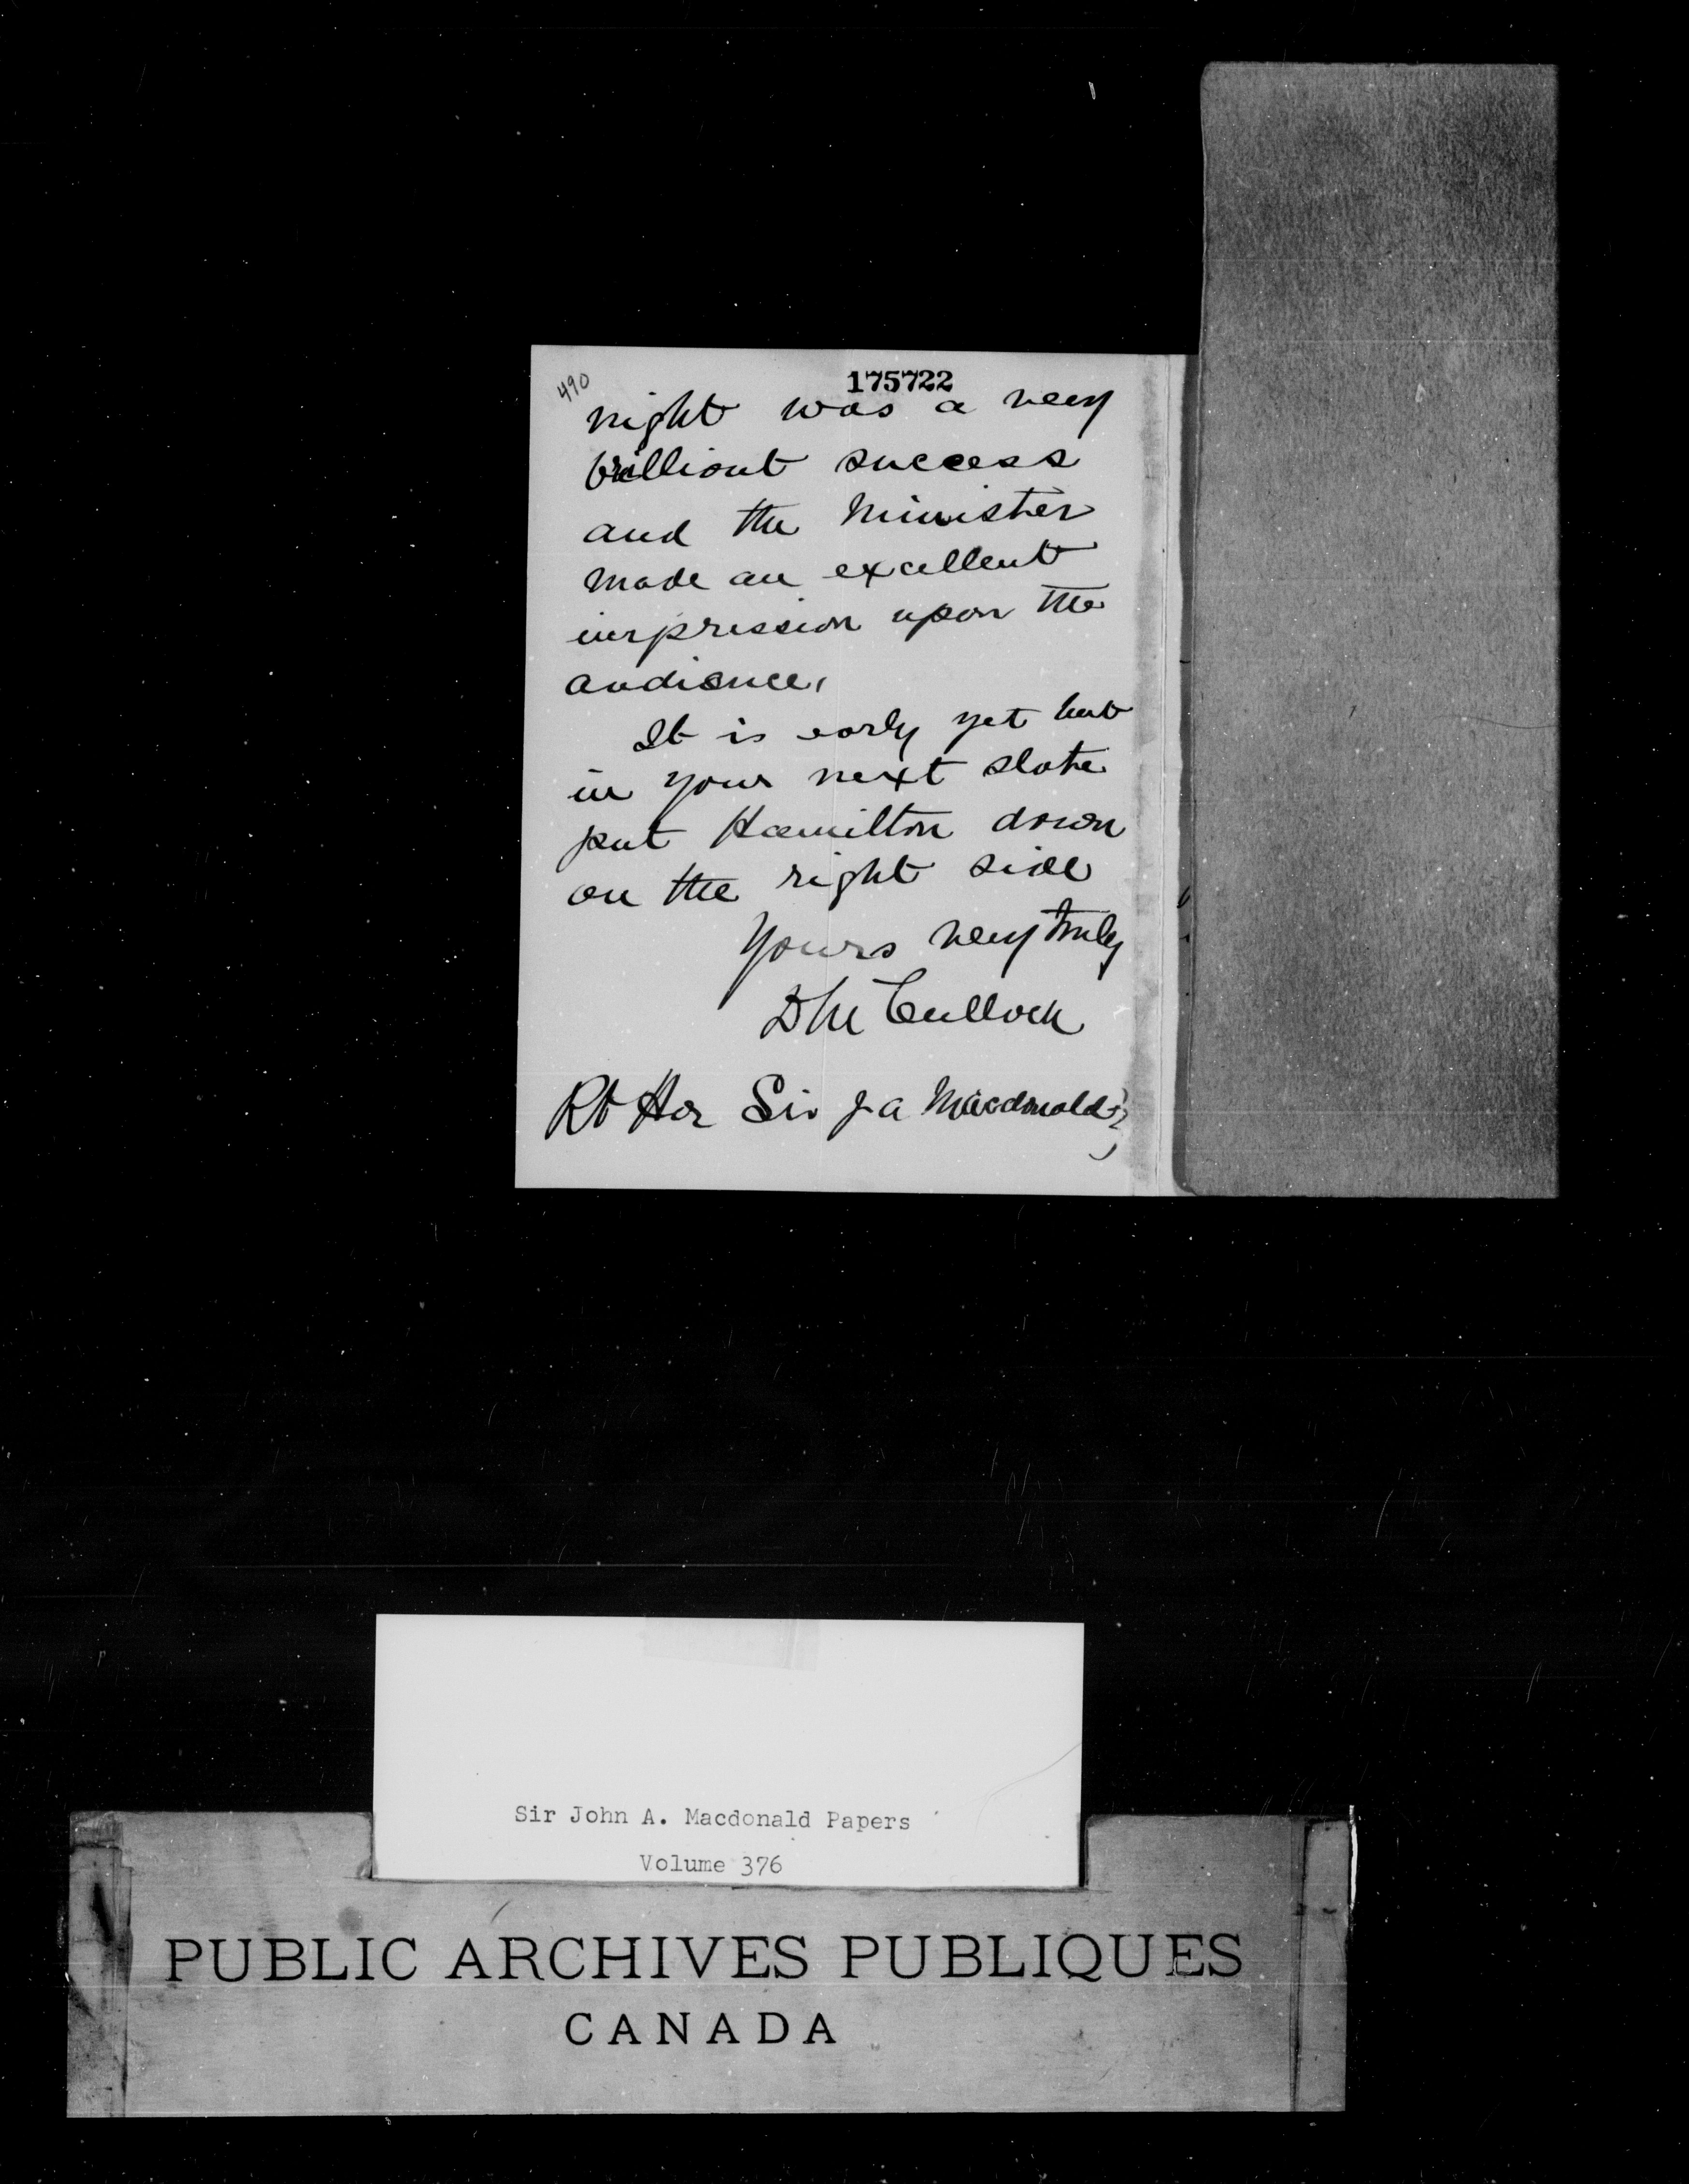 490
175722
night was a very
brilliant success
and the Minister
made an excellent
impression upon the
audience,
It is early yet but
in your next slate
put Hamilton down
on the right side
Yours very truly
D McCullock
Rt Hon Sir J A Macdonald
Sir John A. Macdonald Papers
Volume 376
PUBLIC ARCHIVES PUBLIQUES
CANADA